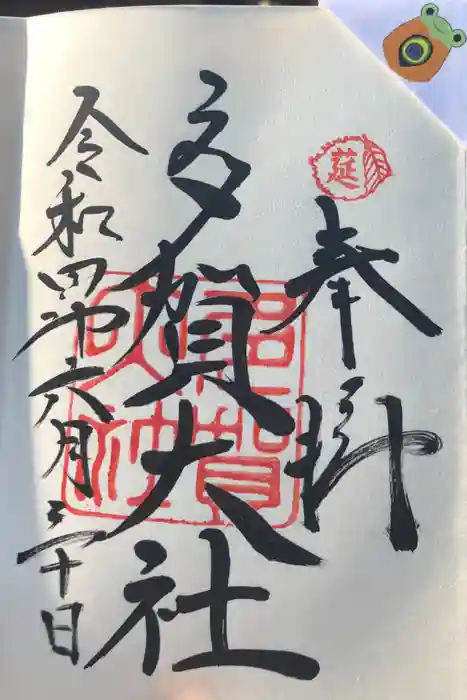 奉拝
莚
多賀大社
多賀大社
令和四年六月三十日